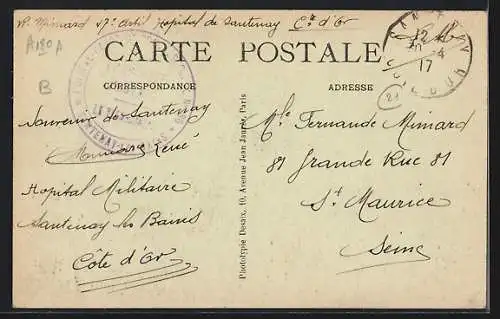 R. Mimard 47e Artil Hopital de Santenay Côte d'Or
A180A
CARTE POSTALE
B
CORRESPONDANCE
ADRESSE
Souvenir de Santenay
René
Hopital Militaire
Santenay les Bains
Côte d'Or
Phototypie Desaix, 10, Avenue Jean Jaurès, Paris
17
21
Mlle Fernande Mimard
81 Grande Rue 81
St Maurice
Seine